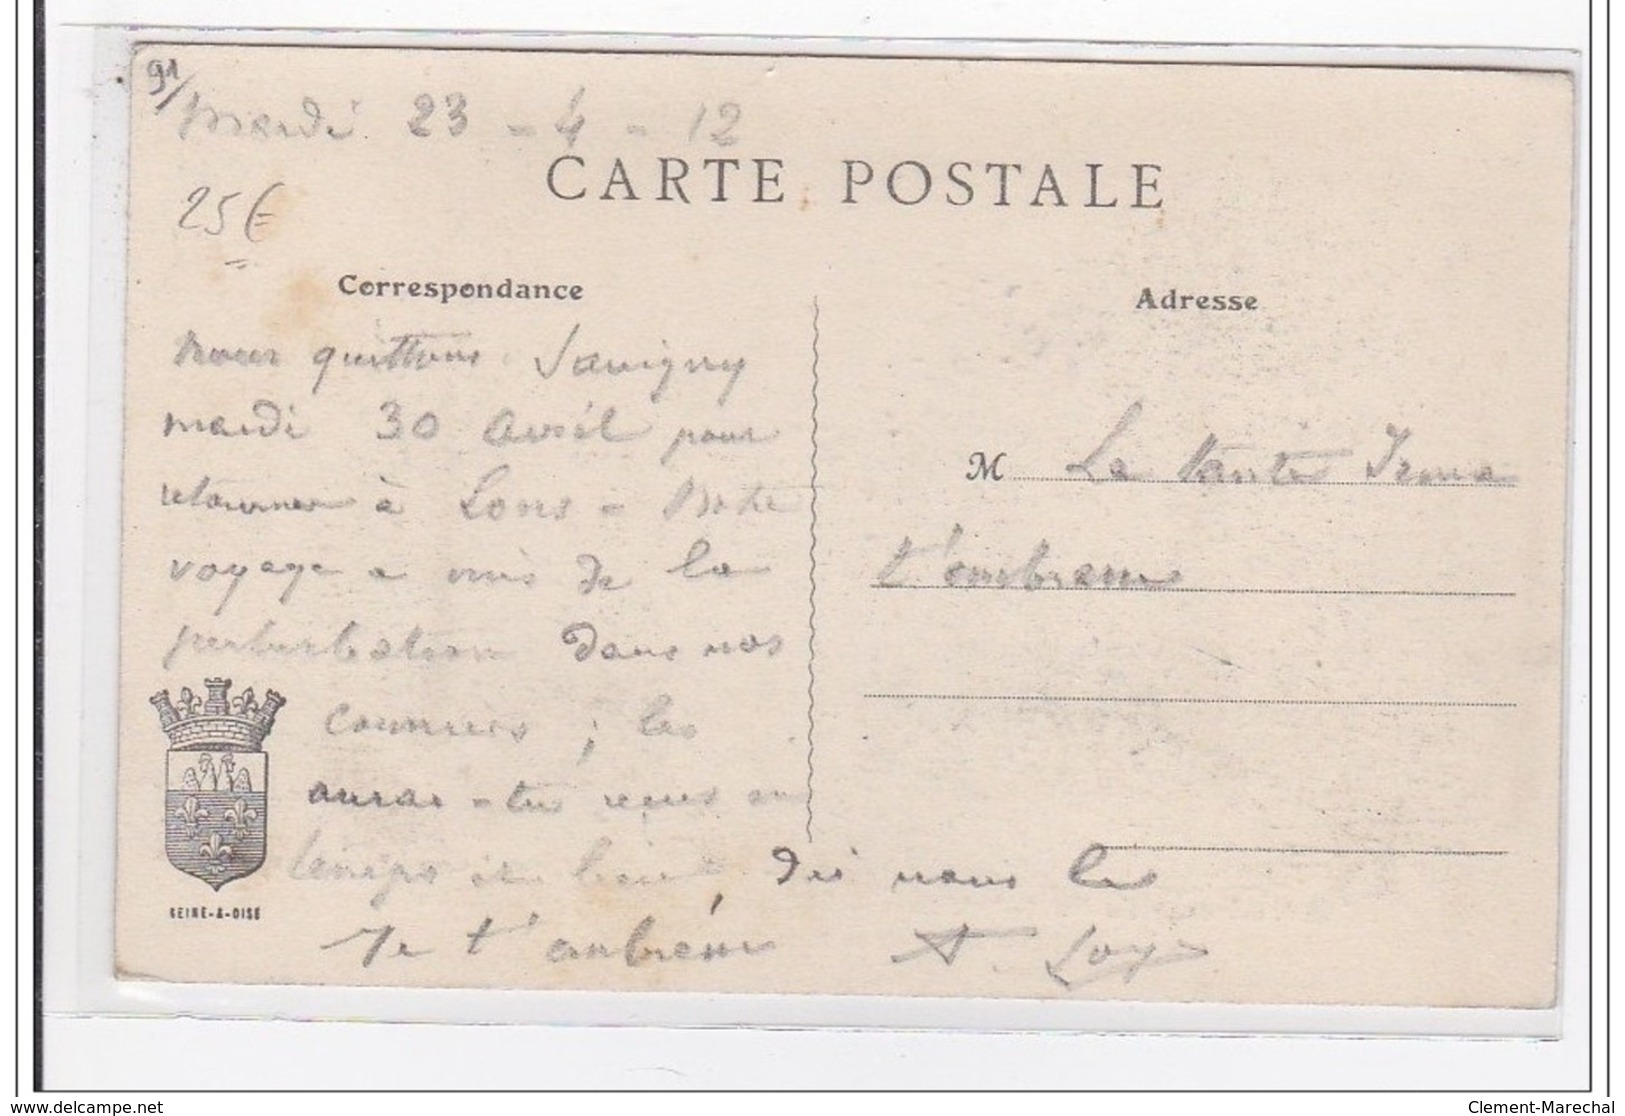 91/
mardi 23 - 4 - 12
25€
CARTE POSTALE
Correspondance
nous quittons Savigny
mardi 30 avril pour
retourner à Lons - Notre
voyage a mis de la
perturbation dans nos
courriers ; les
auras-tu reçus en
temps et lieu, dis nous le
Je t'embrasse A. Loy
SEINE-&-OISE
Adresse
M La tante Irma
t'embrasse
delcampe.net
Clement-Marechal